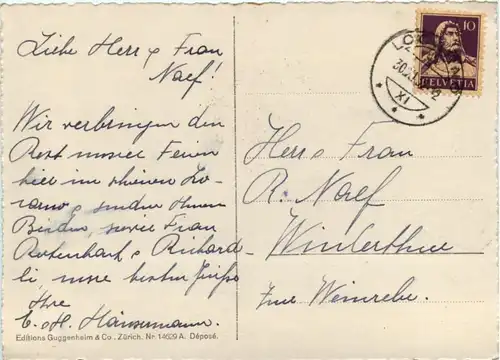 Liebe Herr & Frau
Naef!
Wir verbringen den
Rest unserer Ferien
hier im schönen Lo-
carno & senden Ihnen
Beiden, sowie Frau
Rotenhach & Richard-
li, unsere besten Grüsse
Ihre
E. & H. Hänsermann.
Editions Guggenheim & Co., Zürich. Nr. 14629 A. Déposé.
10
HELVETIA
XI
Herr & Frau
R. Naef
Winterthur
zur Weinrebe.